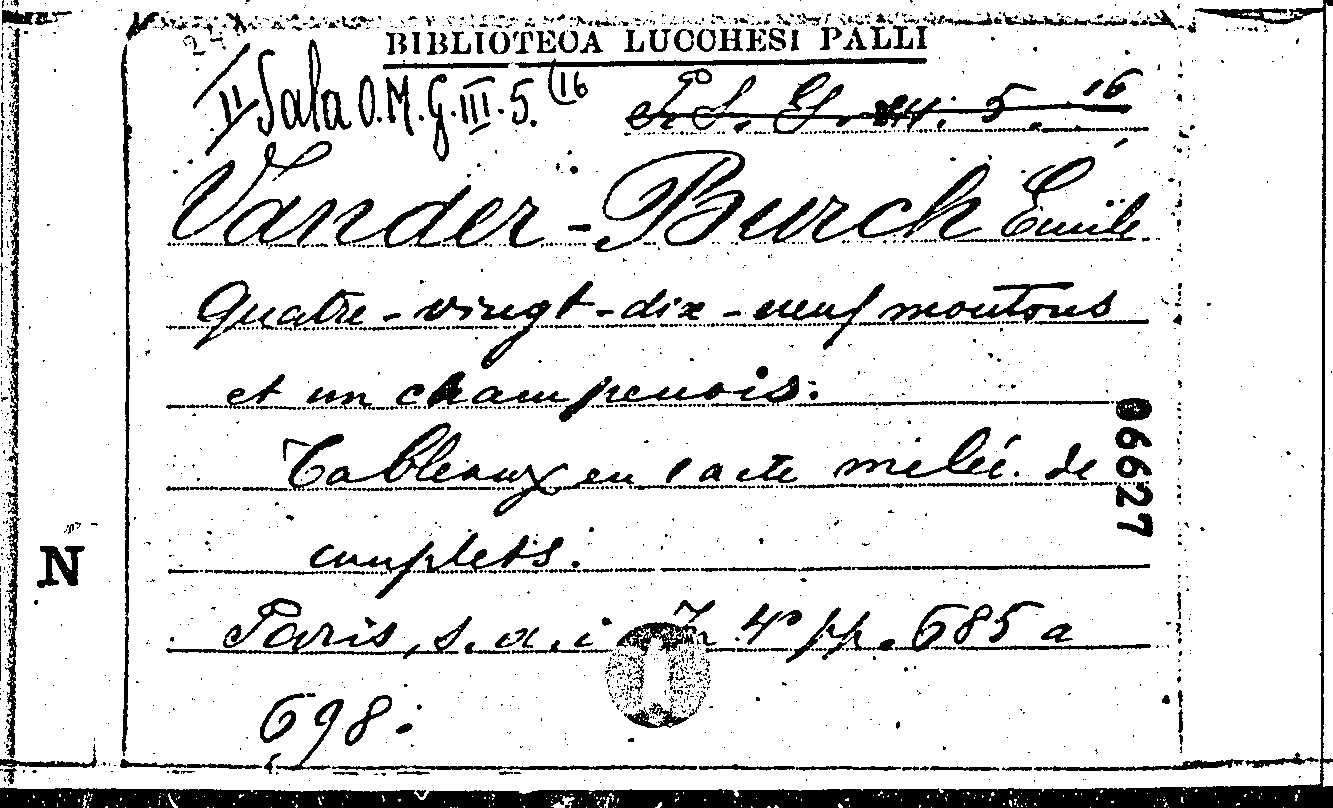 BIBLIOTECA LUCCHESI PALLI
II Sala O.M.G.III.5.(16
P. S. G. 5. 16
Vander-Burch Emile
Quatre-vingt-dix-neuf moutons
et un champenois.
Tableaux en 1 acte mêlé de
couplets.
06627
N
Paris, s. a. i In 4º pp. 685 a
698.